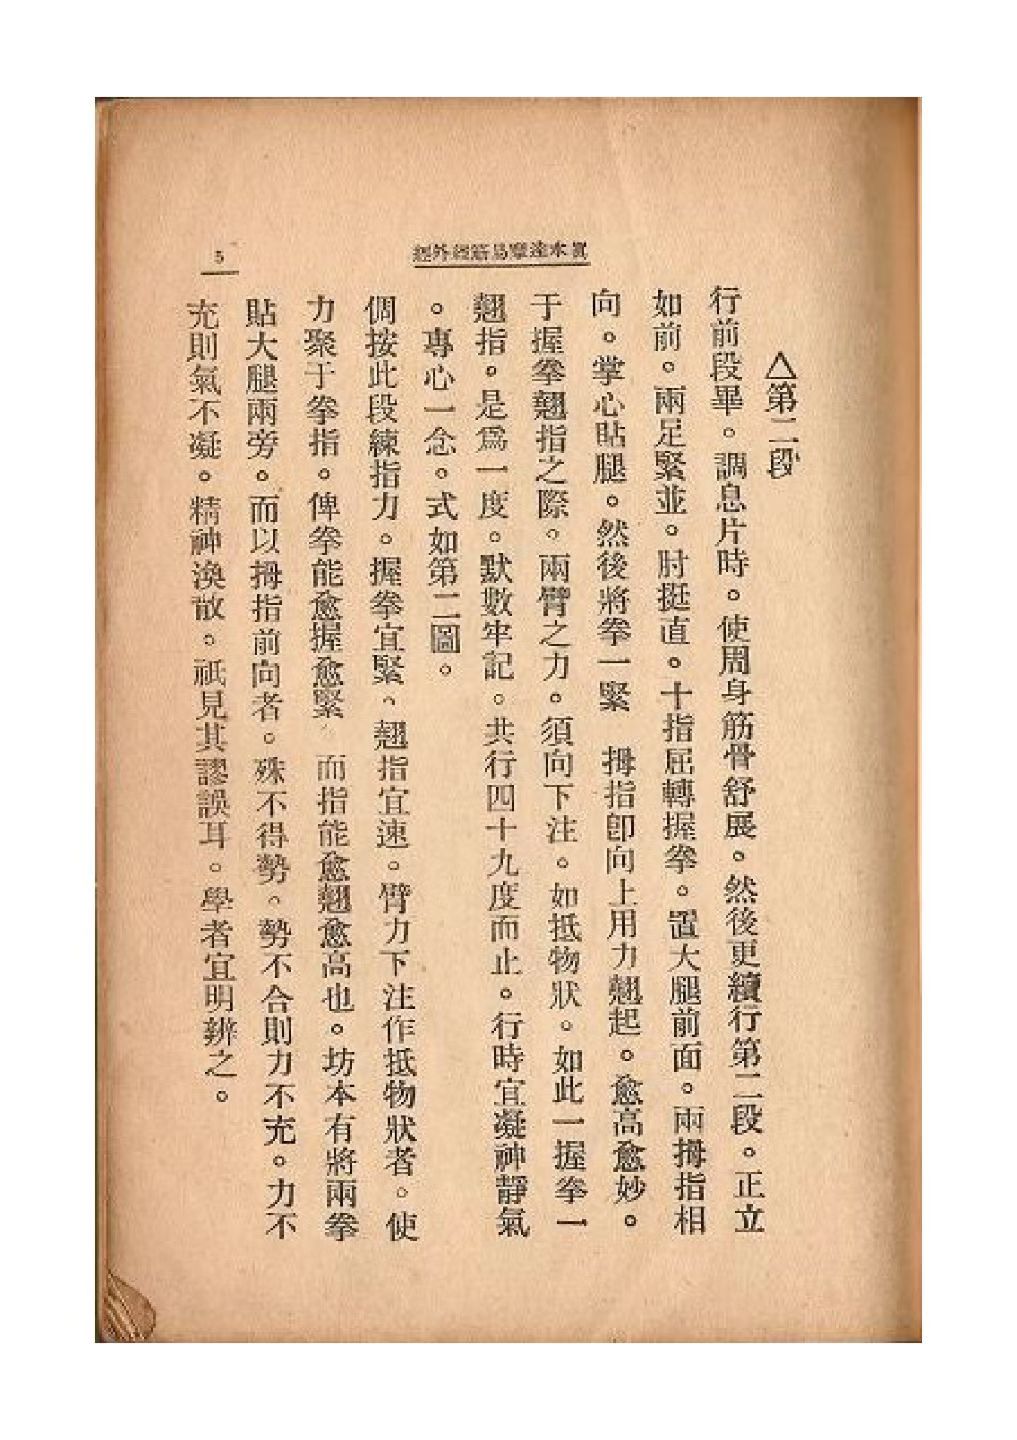 真本達摩易筋經外經
5
△第二段
行前段畢。調息片時。使周身筋骨舒展。然後更續行第二段。正立
如前。兩足緊並。肘挺直。十指屈轉握拳。置大腿前面。兩拇指相
向。掌心貼腿。然後將拳一緊 拇指卽向上用力翹起。愈高愈妙。
于握拳翹指之際。兩臂之力。須向下注。如抵物狀。如此一握拳一
翹指。是爲一度。默數牢記。共行四十九度而止。行時宜凝神靜氣
。專心一念。式如第二圖。
倜按此段練指力。握拳宜緊、翹指宜速。臂力下注作抵物狀者。使
力聚于拳指。俾拳能愈握愈緊 而指能愈翹愈高也。坊本有將兩拳
貼大腿兩旁。而以拇指前向者。殊不得勢。勢不合則力不充。力不
充則氣不凝。精神渙散。祇見其謬誤耳。學者宜明辨之。